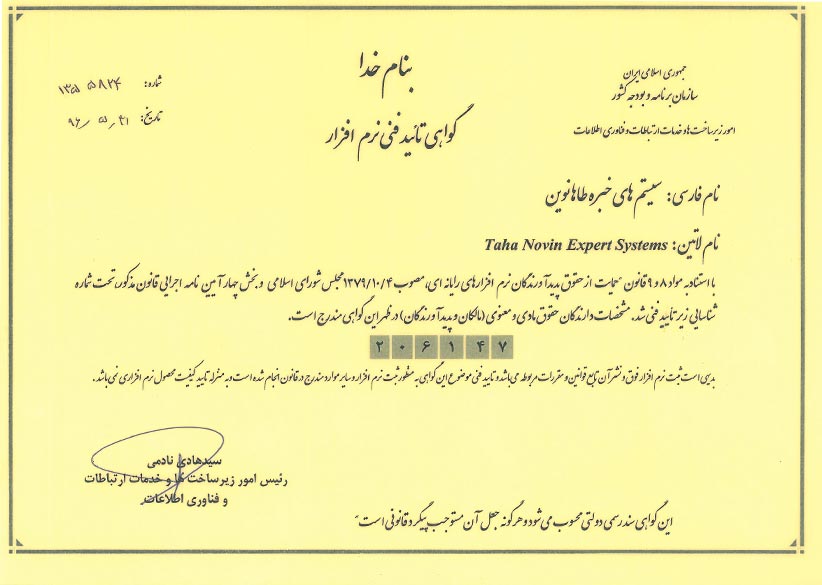 بنام خدا
جمهوری اسلامی ایران
سازمان برنامه و بودجه کشور
امور زیرساخت ها و خدمات ارتباطات و فناوری اطلاعات
شماره:
تاریخ:
گواهی تائید فنی نرم افزار
نام فارسی: سیستم های خبره طاها نوین
نام لاتین: Taha Novin Expert Systems
با استناد به مواد ۸ و ۹ قانون حمایت از حقوق پدیدآورندگان نرم افزارهای رایانه ای، مصوب ۱۳۷۹/۱۰/۴ مجلس شورای اسلامی و بخش چهار آیین نامه اجرایی قانون مذکور، تحت شماره
شناسایی زیر تأیید فنی شد. مشخصات دارندگان حقوق مادی و معنوی (مالکان و پدیدآورندگان) در ظهر این گواهی مندرج است.
۲۰۶۱۴۷
بدیهی است ثبت نرم افزار فوق و نشر آن تابع قوانین و مقررات مربوطه می باشد و تایید فنی موضوع این گواهی به منظور ثبت نرم افزار و سایر موارد مندرج در قانون انجام شده است و به منزله تایید کیفیت محصول نرم افزاری نمی باشد.
سیدهادی نادمی
رئیس امور زیرساخت ها و خدمات ارتباطات
و فناوری اطلاعات
این گواهی سند رسمی دولتی محسوب می شود و هرگونه جعل آن مستوجب پیگرد قانونی است.